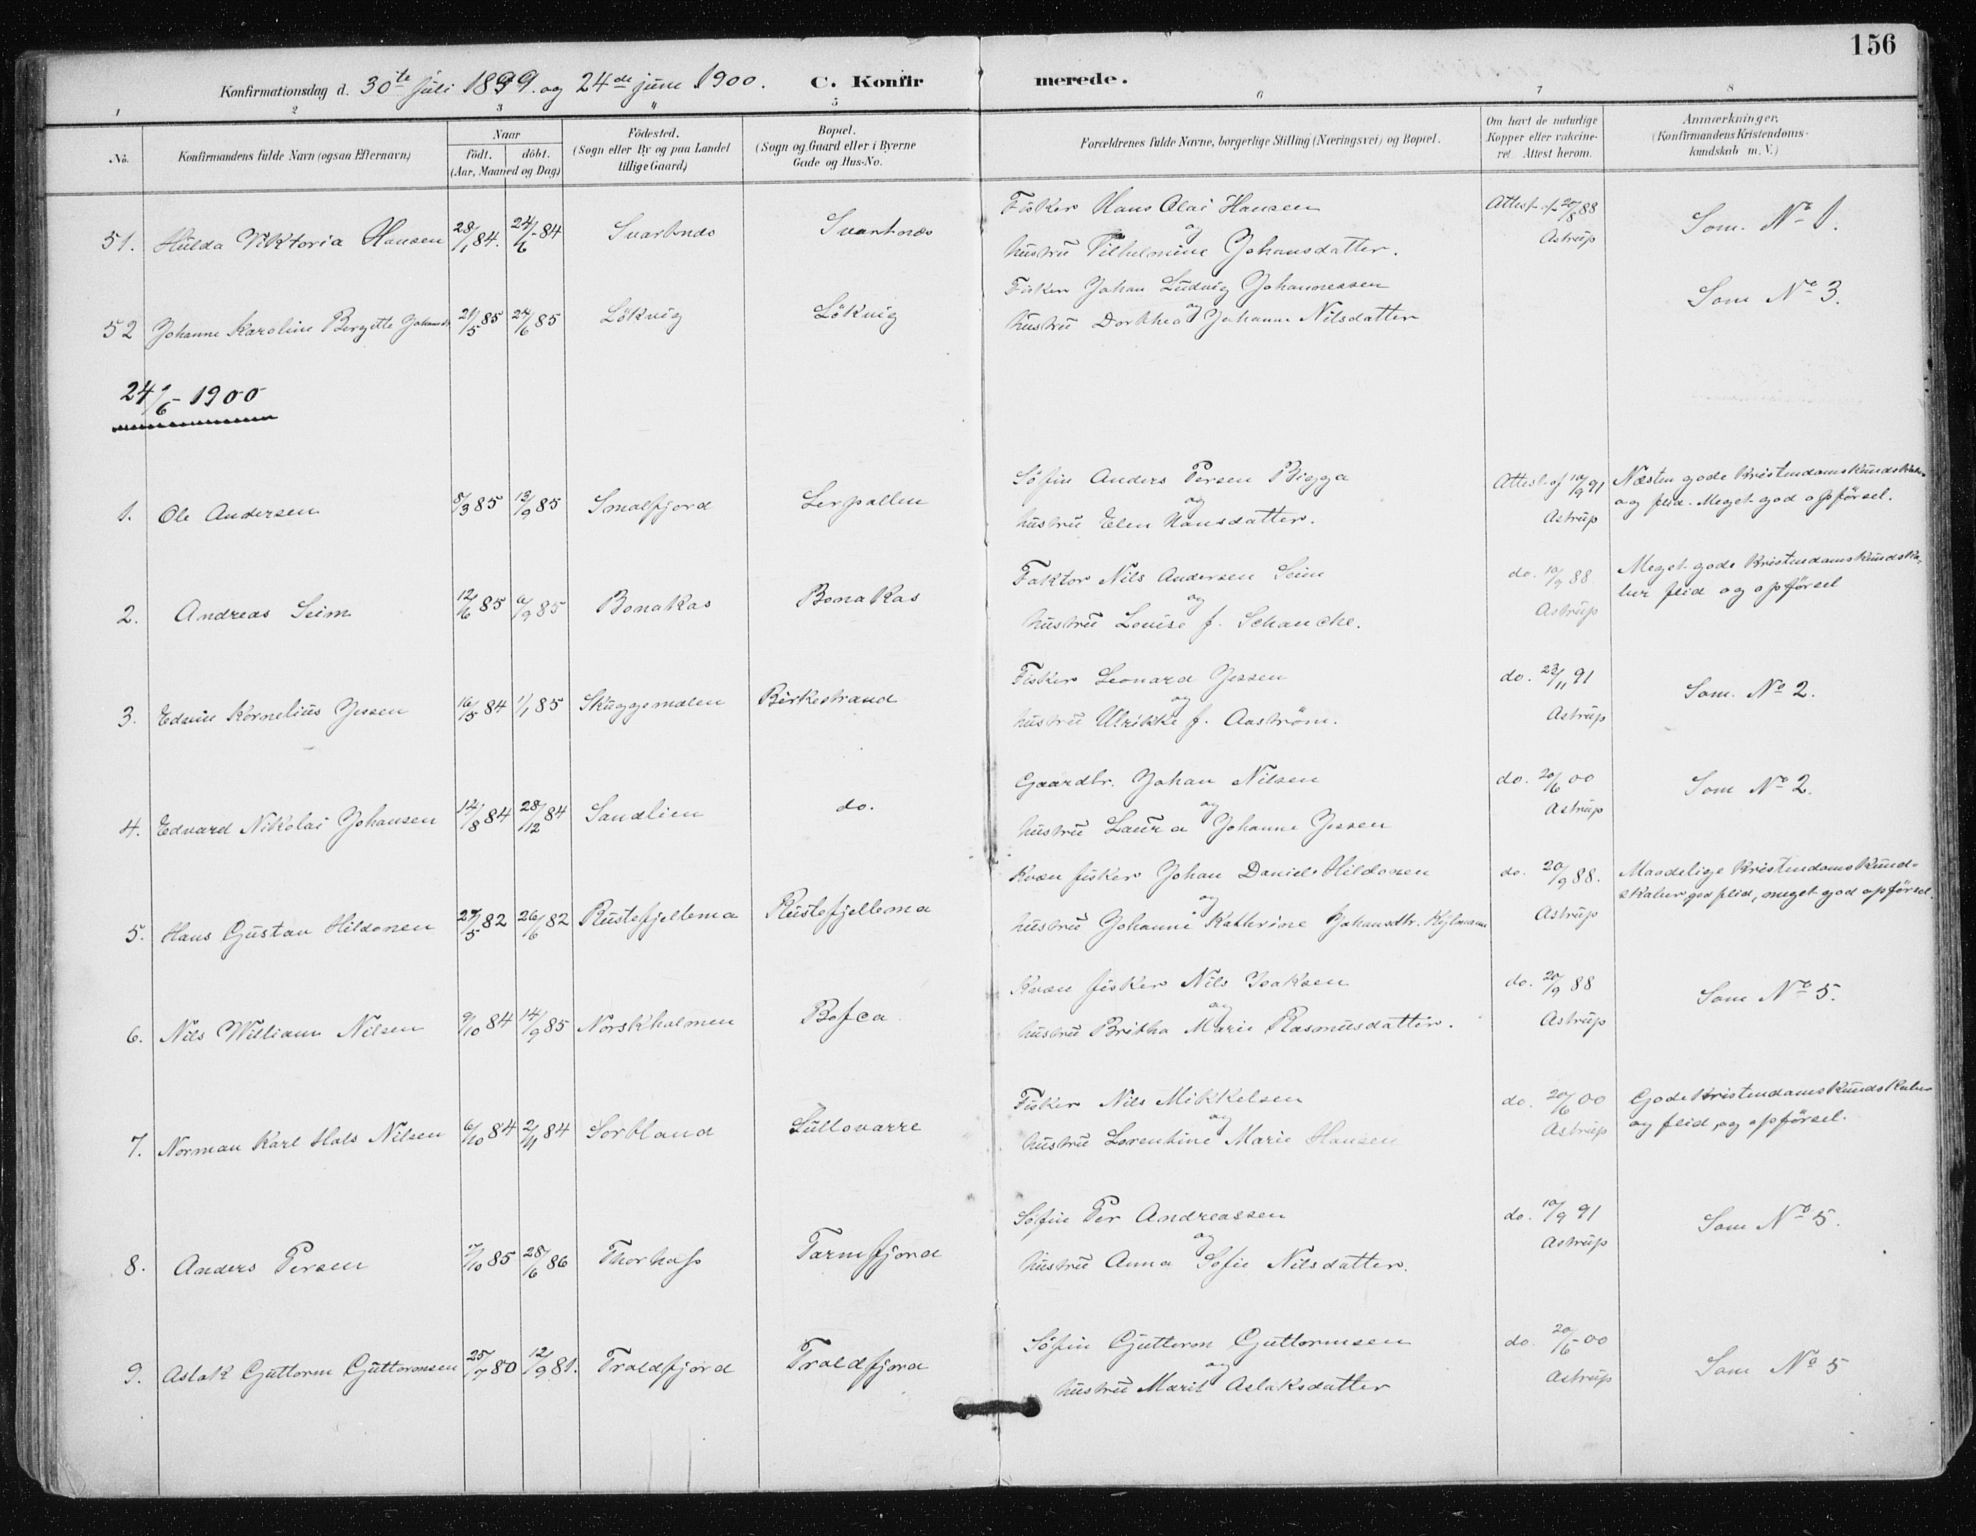 156
Konfirmationsdag d. 30te juli 1899. og 24de juni 1900. C. Konfirmerede.
1 2 3 4 5 6 7 8
No. Konfirmandens fulde Navn (ogsaa Efternavn) Naar født. døbt. (Aar, Maaned og Dag) Fødested. (Sogn eller By og paa Landet tillige Gaard) Bopæl. (Sogn og Gaard eller i Byerne Gade og Hus-No. Forældrenes fulde Navne, borgerlige Stilling (Næringsvei) og Bopæl. Om havt de naturlige Kopper eller vakcineret. Attest herom. Anmærkninger. (Konfirmandens Kristendomskundskab m. V.)
Fisker Hans Olai Hansen Attest af 20/8 88
51. Hulda Viktoria Hansen 28/1 84. 24/6 84 Svartnes Svartnes og Astrup Som No 1.
hustru Vilhelmine Johansdatter.
Fisker Johan Ludvig Johannessen Som No 3.
52 Johanne Karoline Bergitte Johansd 21/5 85 24/6 85 Lökvig Lökvig og
hustru Dorthea Johanne Nilsdatter
24/6 - 1900
Søfin Anders Persen Bigga Attest af 10/9 91 Næsten gode Kristendomskundskaber
1. Ole Andersen 5/3 85 13/9 85 Smalfjord Lerpollen og Astrup og flid. Meget god opførsel.
hustru Elen Hansdatter.
Faktor Nils Andersen Seim do. 10/9 88 Meget gode Kristendomskundska-
2. Andreas Seim 12/6 85 6/9 85 Bonakas Bonakas og Astrup ber flid og opførsel
hustru Louise f. Schanche.
Fisker Leonard Jessen do. 23/11 91 Som No 2.
3. Edvin Kornelius Jessen 16/5 84 1/1 85 Skuggemolen Birkestrand og Astrup
hustru Ulrikke f. Aastrøm.
Gaardbr. Johan Nilsen do. 20/6 00 Som No 2.
4. Edvard Nikolai Johansen 14/8 84 28/12 84 Sandlien do. og Astrup
hustru Laura Johanne Jessen
Kvæn fisker Johan Daniel Hildonen do. 20/9 88. Maadelige Kristendomskund-
5. Hans Gustav Hildonen 27/5 82 26/6 82 Rustefjelbma Rustefjelbma og Astrup skaber, god flid, meget god opførsel.
hustru Johanne Kathrine Johansdtr.
Kvæn fisker Nils Isaksen do. 20/9 88 Som No 5.
6. Nils William Nilsen 9/10 84 14/9 85 Norskholmen og Astrup
hustru Britha Marie Rasmusdatter.
Fisker Nils Mikkelsen do. 20/6 00 Gode Kristendomskundskaber
7. Norman Karl Hals Nilsen 6/10 84 2/11 84 Sortland Lullovarre og Astrup og flid og opførsel.
hustru Lorentine Marie Hansen
Søfin Per Andreassen do. 10/9 91 Som No 5.
8. Anders Persen 7/10 85 28/6 86 Thorhop Tarmfjord og Astrup
hustru Anna Sofie Nilsdatter.
Søfin Guttorm Guttormsen do. 20/6 00
9. Aslak Guttorm Guttormsen 25/7 80 12/9 81. Troldfjord Troldfjord og Astrup Som No 5
hustru Marit Aslaksdatter